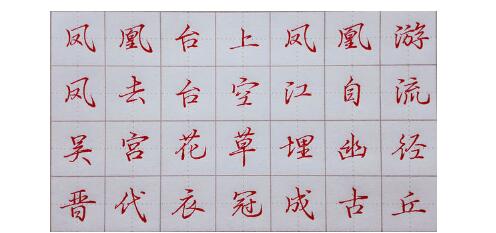 凤凰台上凤凰游
凤去台空江自流
吴宫花草埋幽径
晋代衣冠成古丘